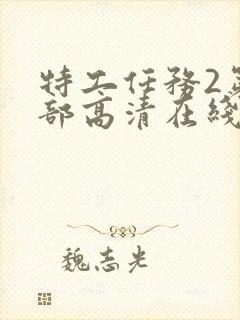 特工任務2第
部高清在綫
魏志光